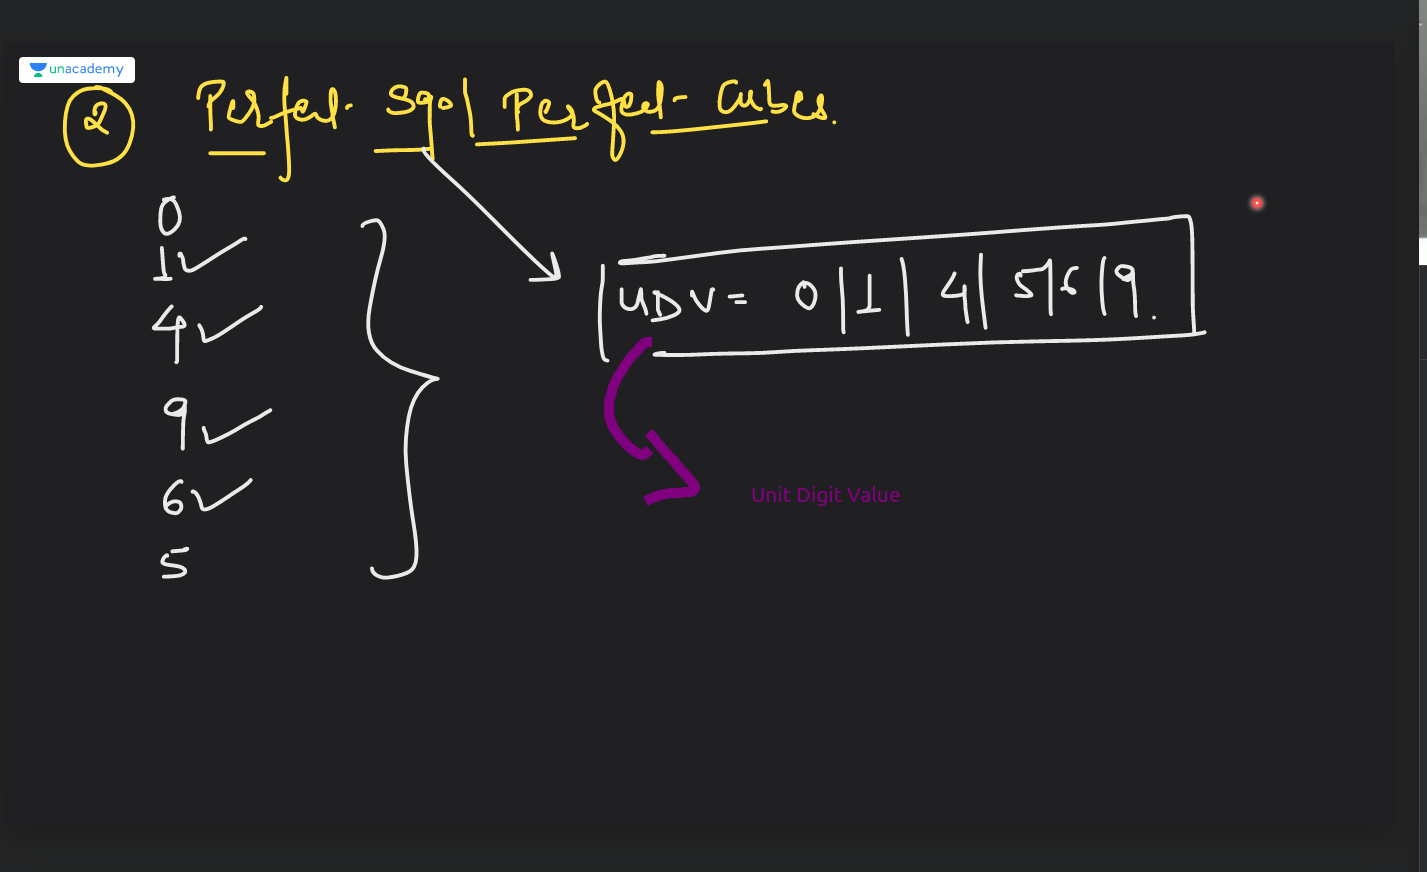 unacademy
2 Perfect Sqo | Perfect Cubes.
0
1
4
9
6
5
UDV = 0 | 1 | 4 | 5 | 6 | 9.
Unit Digit Value